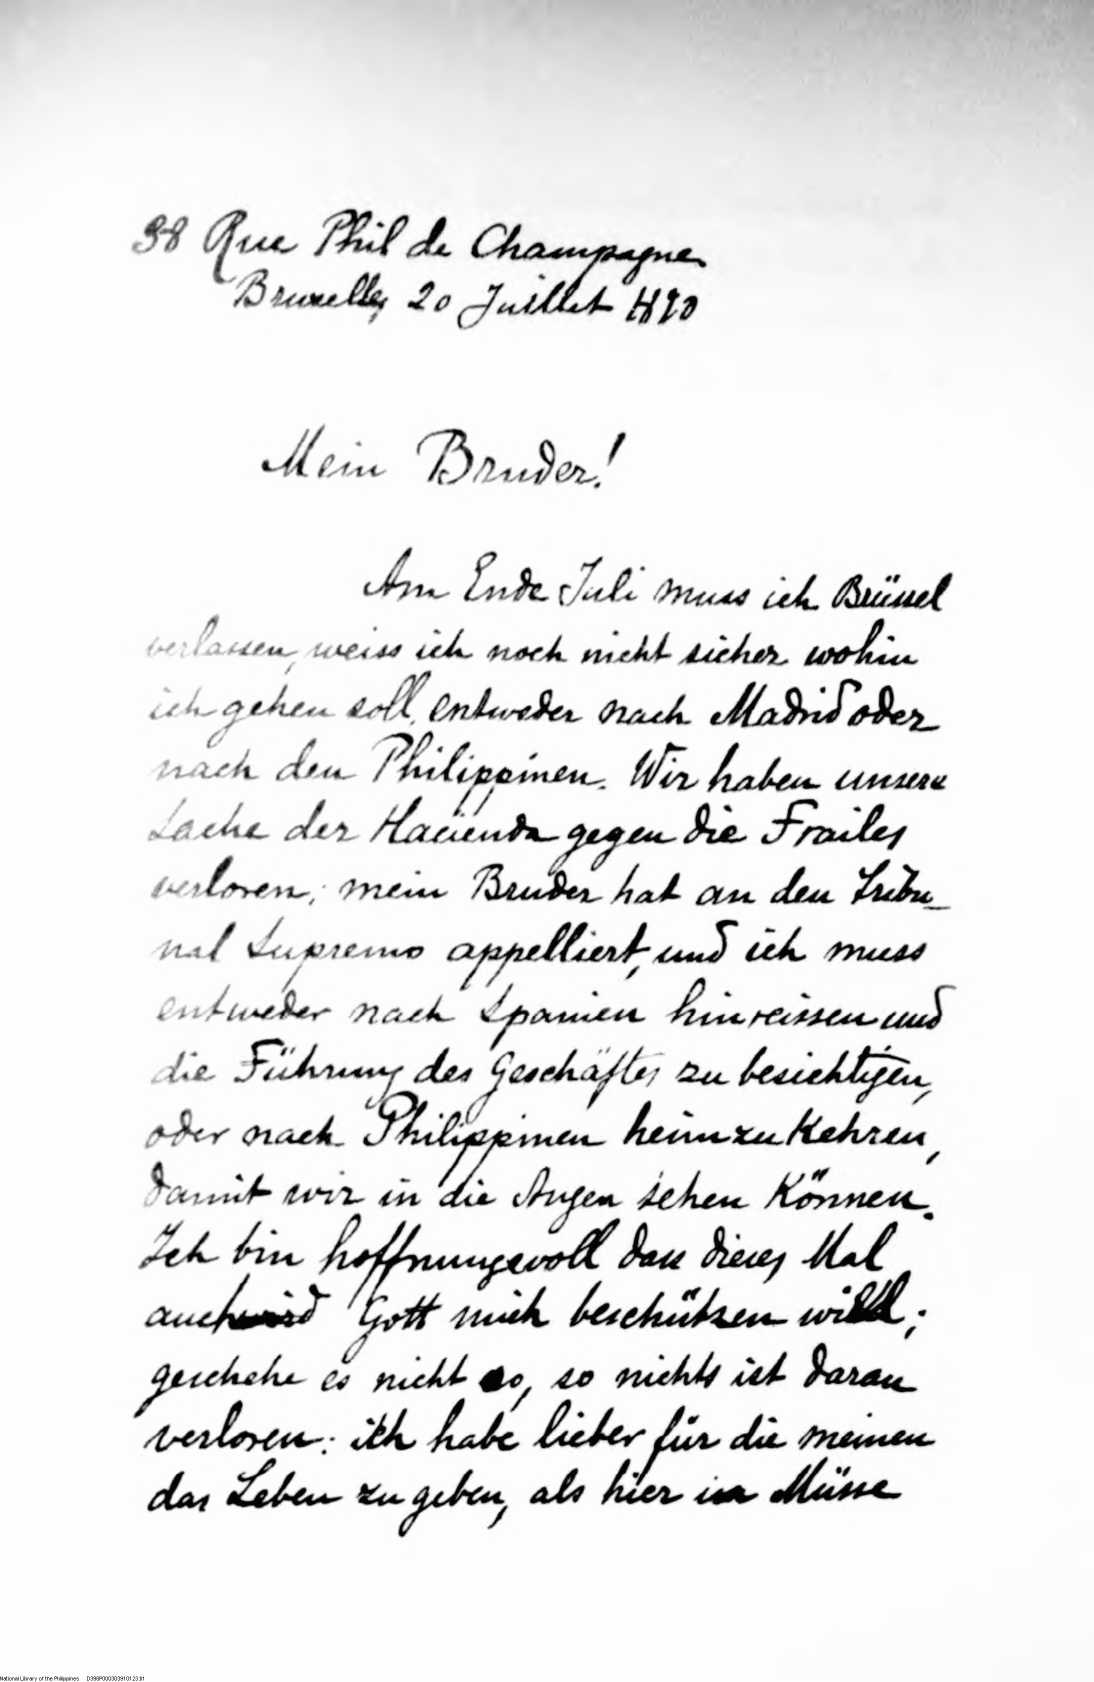 38 Rue Phil de Champagne
Bruxelles, 20 Juillet 1890
Mein Bruder!
Am Ende Juli muss ich Brüssel
verlassen, weiss ich noch nicht sicher wohin
ich gehen soll, entweder nach Madrid oder
nach den Philippinen. Wir haben unsere
Sache der Hacienda gegen die Frailes
verloren; mein Bruder hat an den Tribu-
nal Supremo appelliert, und ich muss
entweder nach Spanien hinreissen und
die Führung des Geschäftes zu besichtigen,
oder nach Philippinen heimzukehren,
damit wir in die Augen sehen können.
Ich bin hoffnungsvoll dass dieses Mal
auch Gott mich beschützen will;
geschehe es nicht so, so nichts ist daran
verloren: ich habe lieber für die meinen
das Leben zu geben, als hier in Müsse
National Library of the Philippines